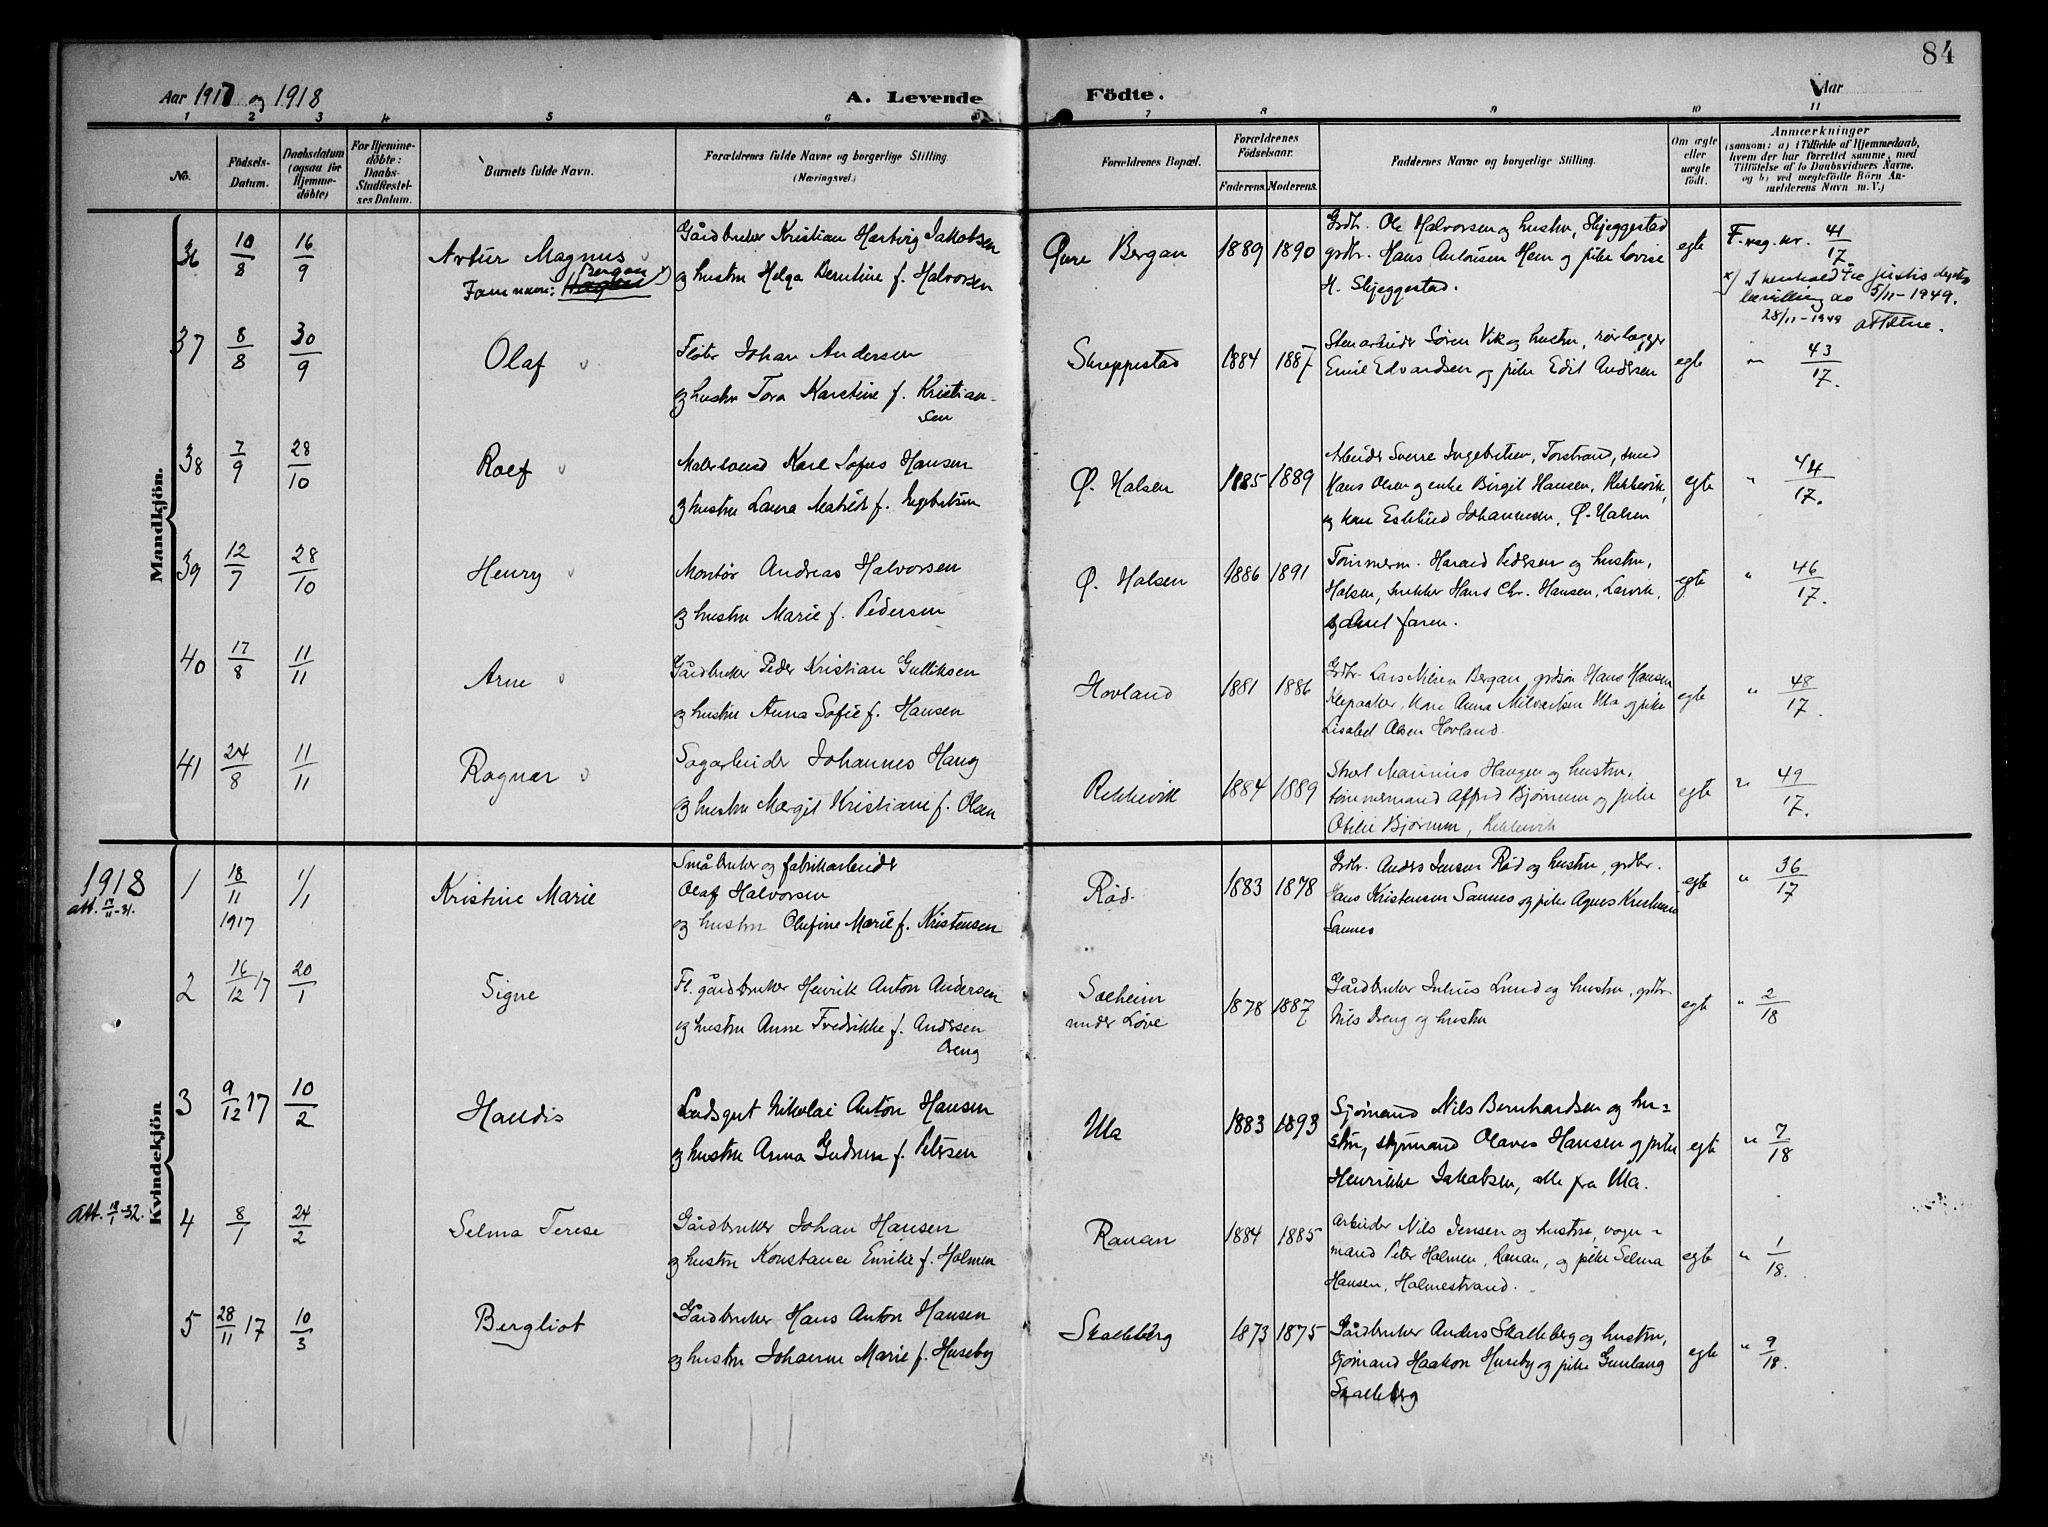 84
Aar 1917 og 1918
A. Levende Födte.
Aar
1 2 3 4 5 6 7 8 9 10 11
No.
Födsels-Datum.
Daabsdatum (ogsaa for Hjemme-döbte)
For Hjemme-döbte: Daabs-Stadfæstel-ses Datum.
Barnets fulde Navn.
Forældrenes fulde Navne og borgerlige Stilling.
(Næringsvei.)
Forældrenes Bopæl.
Forældrenes Födselsaar.
Faderens. Moderens.
Faddernes Navne og borgerlige Stilling.
Om ægte eller uægte födt.
Anmærkninger
(saasom: a) i Tilfælde af Hjemmedaab, hvem der har forrettet samme, med Tilföielse af to Daabsvidners Navne. og b) ved uægtefödte Börn An-melderens Navn m. V.)
Mandkjön.
36 10/8 16/9 Artur Magnus
Bergan x)
Gårdbruker Kristian Hartvig Jakobsen
og hustru Helga Berntine f. Halvorsen
Øvre Bergan 1889 1890
Grdbr. Ole Halvorsen og hustru, Skjeggestad
grdbr. Hans Antonsen Hem og pike Lovise
H. Skjeggestad.
egte F. reg. nr. 41/17.
x) I henhold til justisdepts
bevilling av 5/11-1949.
28/11-1949
37 8/8 30/9 Olaf
Fløter Johan Andersen
og hustru Tora Karetine f. Kristian-
sen
Skreppestad 1884 1887
Stenarbeider Søren Vik og hustru, rørlægger
Emil Edvardsen og pike Edit Andersen
egte " 43/17.
38 7/9 28/10 Rolf
Malersvend Karl Sofus Hansen
og hustru Laura Matilde f. Ingebretsen
Ø. Halsen 1885 1889
Arbeider Sverre Ingebretsen, Torstrand, smed
Hans Olsen og enke Birgit Hansen, Rekkevik,
og kone Esklind Johannesen, Ø. Halsen
egte " 44/17.
39 12/7 28/10 Henry
Montør Andreas Halvorsen
og hustru Marie f. Pedersen
Ø. Halsen 1886 1891
Tømmerm. Harald Pedersen og hustru,
Halsen, snekker Hans Chr. Hansen, Larvik,
faren.
egte " 46/17.
40 17/8 11/11 Arne
Gårdbruker Peder Kristian Gulliksen
og hustru Anna Sofie f. Hansen
Hovland 1881 1886
Grdbr. Lars Bergan, grdsøn Hans Hansen
Klepaaker, kone Anna Ula og pike
Lisabet Olsen Hovland.
egte " 48/17.
41 24/8 11/11 Ragnar
Sagarbeider Johannes Haug
og hustru Margit Kristiane f. Olsen
Rekkevik 1884 1889
Marinius Haugen og hustru,
tømmermand Alfred Bjørnum og pike
Otelie Bjørnum, Rekkevik
egte " 49/17.
1918
Kvindekjön
att. 17/11-31.
1 18/11 1917 1/1 Kristine Marie
Småbruker og fabrikarbeider
Olaf Halvorsen
og hustru Olufine Marie f. Kristensen
Rød. 1883 1878
Grdbr. Anders Jensen Rød og hustru, grdbr.
Hans Kristensen Sannes og pike Agnes Kristensen
Sannes
egte " 36/17
2 16/12 17 20/1 Signe
Fl. gårdbruker Henrik Anton Andersen
og hustru Anne Fredrikke f. Andersen
Oseng
Solheim
under Løve 1878 1887
Gårdbruker Julius Lund og hustru, grdbr.
Nils Oseng og hustru
egte " 2/18
3 9/12 17 10/2 Haldis
Lodsgut Nikolai Anton Hansen
og hustru Anna Gudrun f. Petersen
Ula 1883 1893
Sjømand Nils Bernhardsen og hu-
stru, styrmand Olaves Hansen og pike
Henrikke Jakobsen, alle fra Ula.
egte " 7/18
att. 18/1-32.
4 8/1 24/2 Selma Terese
Gårdbruker Johan Hansen
og hustru Konstance Emilie f. Holmen
Rauan 1884 1885
Arbeider Nils Jensen og hustru, vogn-
mand Peter Holmen, Rauan, og pike Selma
Hansen, Holmestrand.
egte " 1/18.
5 28/11 17 10/3 Bergliot
Gårdbruker Hans Anton Hansen
og hustru Johanne Marie f. Huseby
Skalleberg 1873 1875
Gårdbruker Anders Skalleberg og hustru,
sjømand Haakon Huseby og pike Gunlaug
Skalleberg
egte " 9/18.